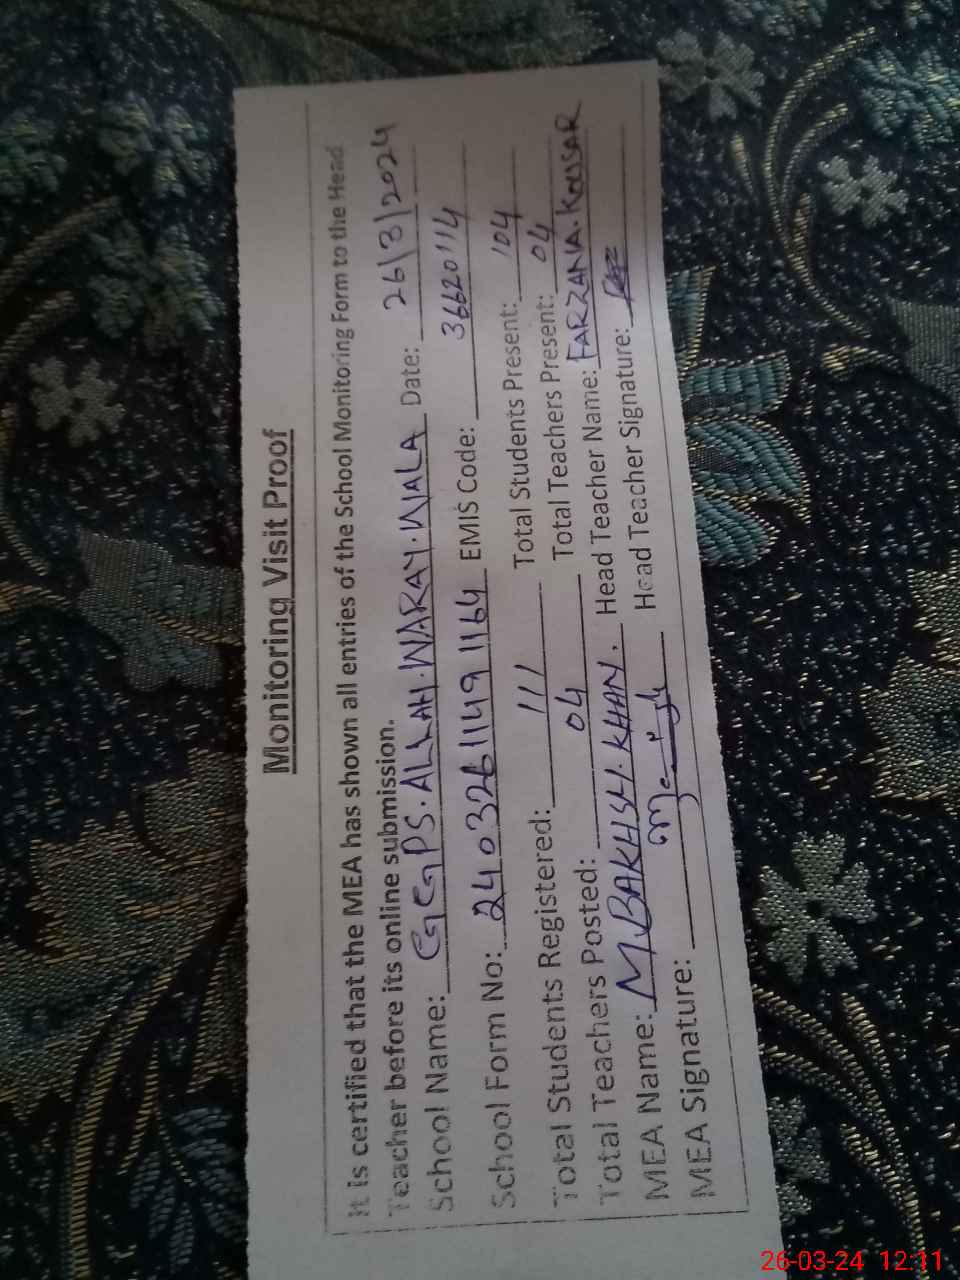 Monitoring Visit Proof
It is certified that the MEA has shown all entries of the School Monitoring Form to the Head
Teacher before its online submission.
School Name: GGPS. ALLAH. WARAY. WALA Date: 26/3/2024
School Form No: 24032611491164 EMIS Code: 36620114
Total Students Registered: 111 Total Students Present: 104
Total Teachers Posted: 04 Total Teachers Present: 04
MEA Name: M. BAKHSH. KHAN. Head Teacher Name: FARZANA. KOUSAR
MEA Signature: Head Teacher Signature:
26-03-24 12:11